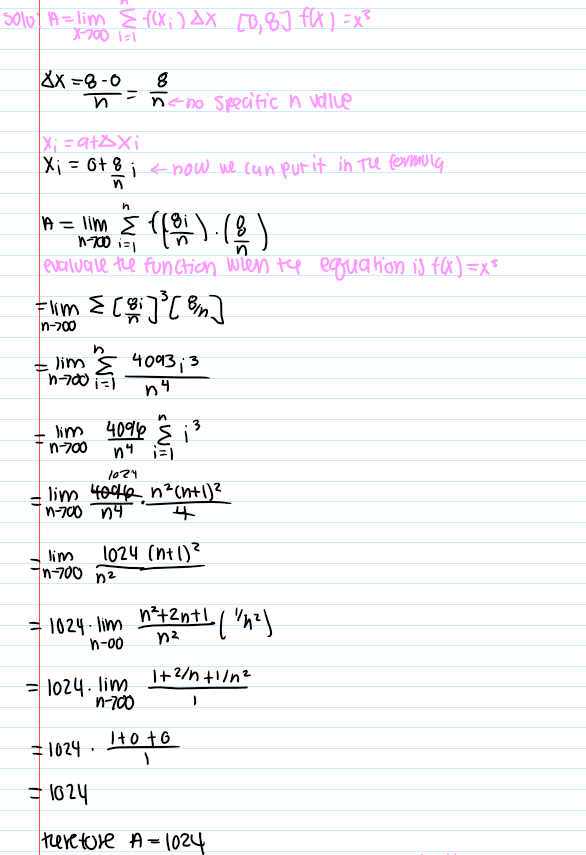 Solu: A = lim n Σ i=1 f(xi) Δx [0,8] f(x) = x³ x→∞
Δx = 8-0/n = 8/n ← no specific n value
xi = a+Δxi
xi = 0+8/n i ← now we can put it in the formula
A = lim n→∞ n Σ i=1 f(8i/n) · (8/n)
evaluate the function when the equation is f(x) = x³
= lim n→∞ Σ [8i/n]³ [8/n]
= lim n→∞ n Σ i=1 4093i³/n⁴
= lim n→∞ 4096/n⁴ n Σ i=1 i³
= lim n→∞ 1024 4096/n⁴ · n²(n+1)²/4
= lim n→∞ 1024 (n+1)²/n²
= 1024 · lim n→∞ n²+2n+1/n² (1/n²)
= 1024 · lim n→∞ 1+2/n+1/n²/1
= 1024 · 1+0+0/1
= 1024
therefore A = 1024